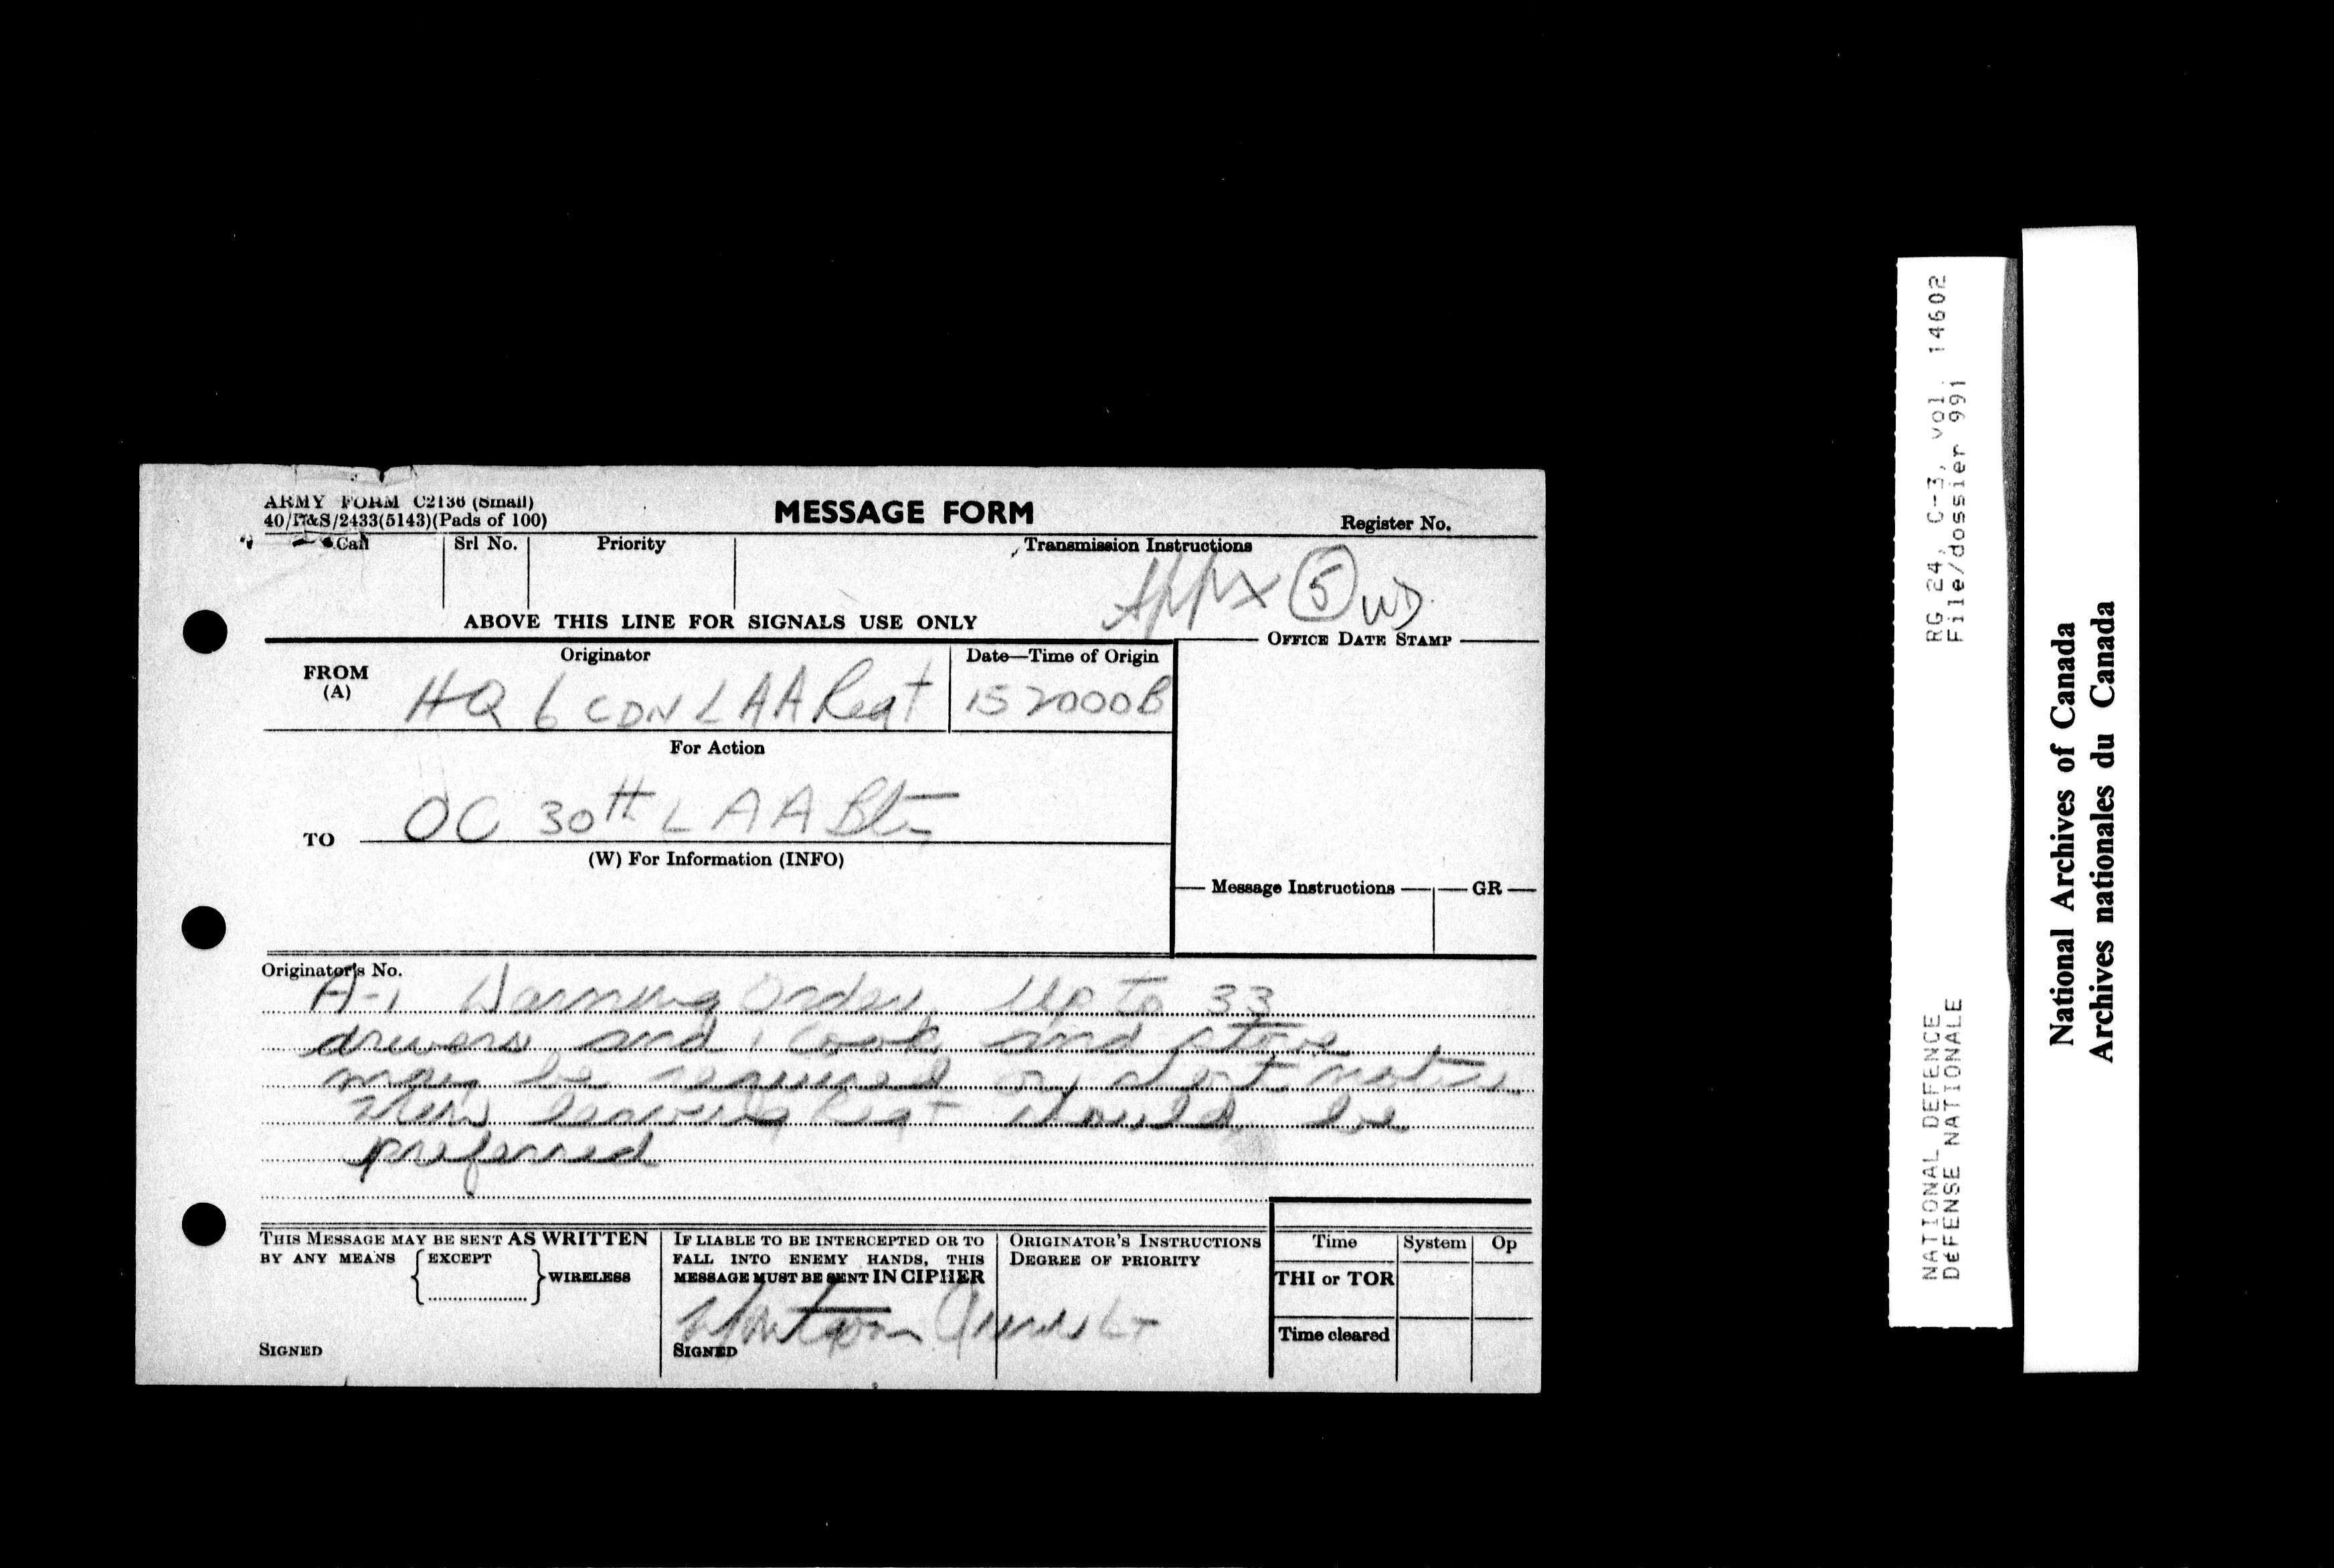 ARMY FORM C2136 (Small)
40/P&S/2433(5143)(Pads of 100)
MESSAGE FORM
Register No.
Call
Srl No.
Priority
Transmission Instructions
Appx 5 WD
ABOVE THIS LINE FOR SIGNALS USE ONLY
OFFICE DATE STAMP
FROM
(A)
Originator
HQ 6 CDN LAA Regt
Date—Time of Origin
152000B
For Action
TO
OC 30th LAA Bty
(W) For Information (INFO)
Message Instructions
GR
Originator's No.
A-1 Warning Order Up to 33
drivers and 1 cook and stove
may be required on short notice
Men leaving Regt should be
preferred
THIS MESSAGE MAY BE SENT AS WRITTEN
BY ANY MEANS { EXCEPT } WIRELESS
SIGNED
IF LIABLE TO BE INTERCEPTED OR TO
FALL INTO ENEMY HANDS, THIS
MESSAGE MUST BE SENT IN CIPHER
SIGNED
Lt
ORIGINATOR'S INSTRUCTIONS
DEGREE OF PRIORITY
Time
System
Op
THI or TOR
Time cleared
RG 24, C-3, vol. 14602
File/dossier 991
NATIONAL DEFENCE
DÉFENSE NATIONALE
National Archives of Canada
Archives nationales du Canada